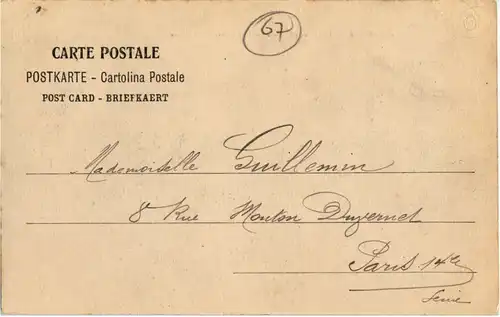 67
CARTE POSTALE
POSTKARTE - Cartolina Postale
POST CARD - BRIEFKAERT
Mademoiselle Guillemin
8 Rue Mouton Duvernet
Paris 14e
Seine